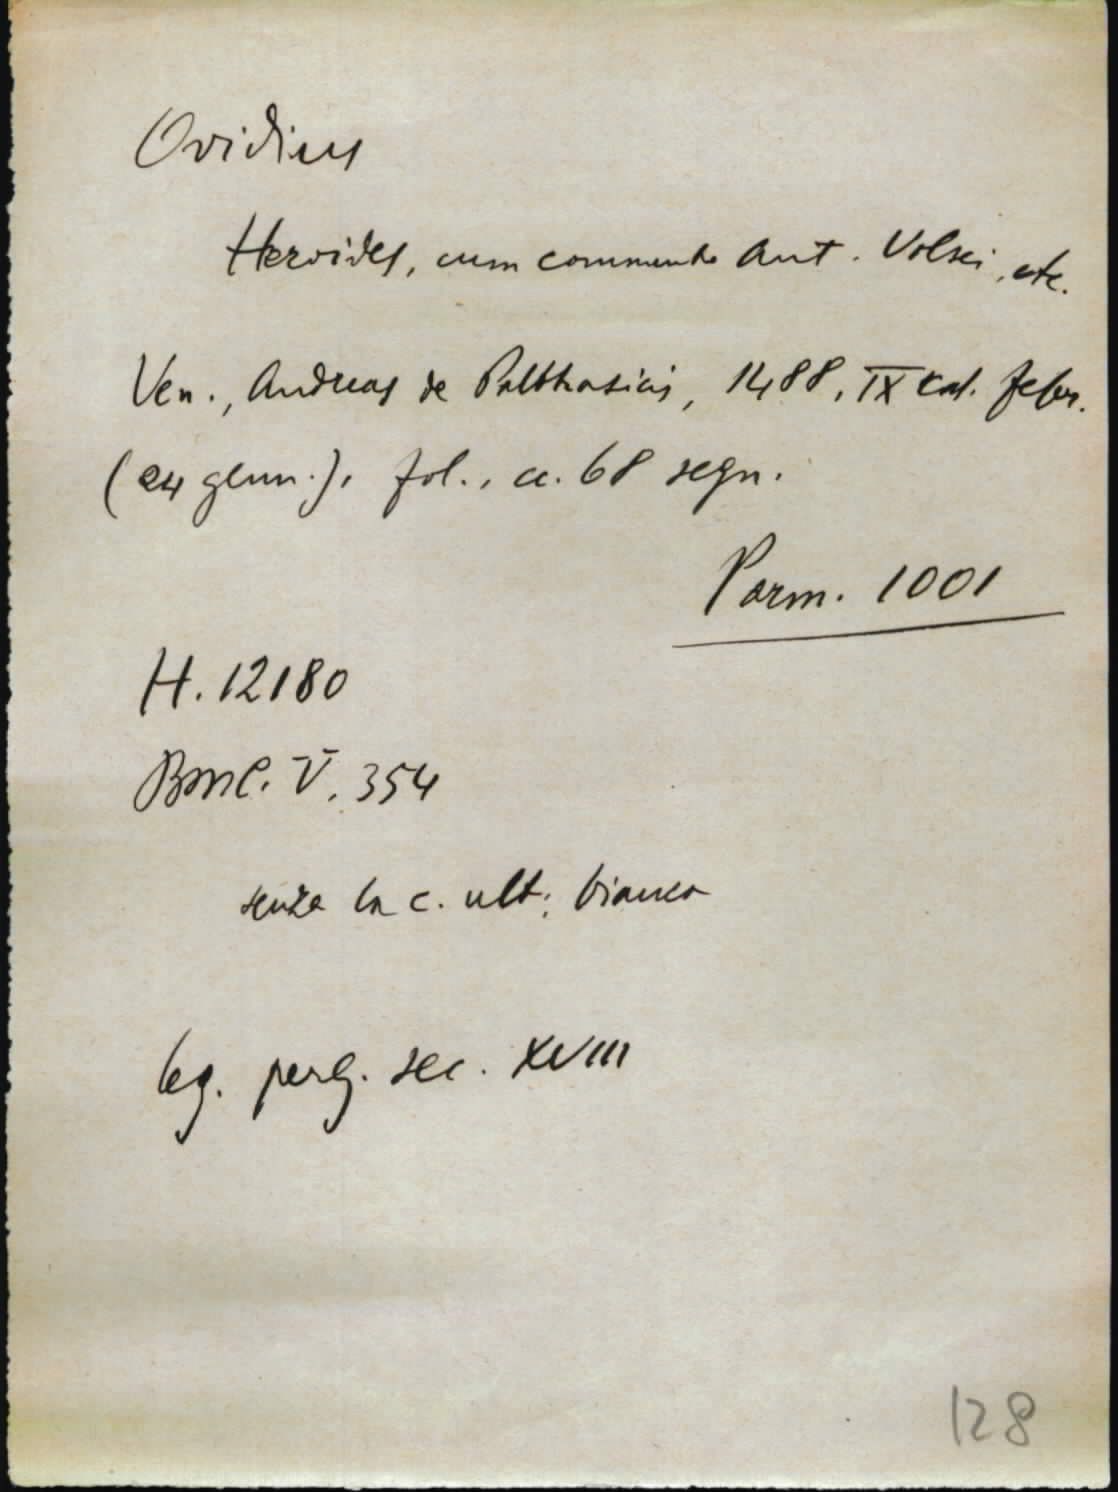 Ovidius
Heroides, cum commento Ant. Volsci, etc.
Ven., Andreas de Palthasicis, 1488, IX kal. febr.
(24 genn.), fol., cc. 68 segn.
Parm. 1001
H. 12180
BMC. V. 354
senza la c. ult. bianca
leg. perg. sec. XVIII
128